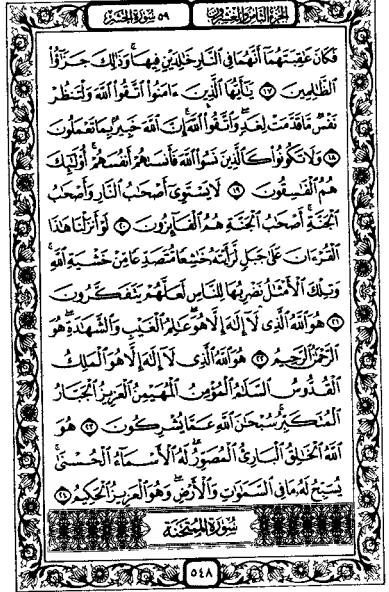 الجزء الثامن والعشرون ٥٩ سورة الحشر
فَكَانَ عَٰقِبَتَهُمَآ أَنَّهُمَا فِى ٱلنَّارِ خَٰلِدَيْنِ فِيهَا ۚ وَذَٰلِكَ جَزَٰٓؤُا۟
ٱلظَّٰلِمِينَ ١٧ يَٰٓأَيُّهَا ٱلَّذِينَ ءَامَنُوا۟ ٱتَّقُوا۟ ٱللَّهَ وَلْتَنظُرْ
نَفْسٌ مَّا قَدَّمَتْ لِغَدٍ ۖ وَٱتَّقُوا۟ ٱللَّهَ ۚ إِنَّ ٱللَّهَ خَبِيرٌۢ بِمَا تَعْمَلُونَ
١٨ وَلَا تَكُونُوا۟ كَٱلَّذِينَ نَسُوا۟ ٱللَّهَ فَأَنسَىٰهُمْ أَنفُسَهُمْ ۚ أُو۟لَٰٓئِكَ
هُمُ ٱلْفَٰسِقُونَ ١٩ لَا يَسْتَوِىٓ أَصْحَٰبُ ٱلنَّارِ وَأَصْحَٰبُ
ٱلْجَنَّةِ ۚ أَصْحَٰبُ ٱلْجَنَّةِ هُمُ ٱلْفَآئِزُونَ ٢٠ لَوْ أَنزَلْنَا هَٰذَا
ٱلْقُرْءَانَ عَلَىٰ جَبَلٍ لَّرَأَيْتَهُۥ خَٰشِعًا مُّتَصَدِّعًا مِّنْ خَشْيَةِ ٱللَّهِ ۚ
وَتِلْكَ ٱلْأَمْثَٰلُ نَضْرِبُهَا لِلنَّاسِ لَعَلَّهُمْ يَتَفَكَّرُونَ
٢١ هُوَ ٱللَّهُ ٱلَّذِى لَآ إِلَٰهَ إِلَّا هُوَ ۖ عَٰلِمُ ٱلْغَيْبِ وَٱلشَّهَٰدَةِ ۖ هُوَ
ٱلرَّحْمَٰنُ ٱلرَّحِيمُ ٢٢ هُوَ ٱللَّهُ ٱلَّذِى لَآ إِلَٰهَ إِلَّا هُوَ ٱلْمَلِكُ
ٱلْقُدُّوسُ ٱلسَّلَٰمُ ٱلْمُؤْمِنُ ٱلْمُهَيْمِنُ ٱلْعَزِيزُ ٱلْجَبَّارُ
ٱلْمُتَكَبِّرُ ۚ سُبْحَٰنَ ٱللَّهِ عَمَّا يُشْرِكُونَ ٢٣ هُوَ
ٱللَّهُ ٱلْخَٰلِقُ ٱلْبَارِئُ ٱلْمُصَوِّرُ ۖ لَهُ ٱلْأَسْمَآءُ ٱلْحُسْنَىٰ ۚ
يُسَبِّحُ لَهُۥ مَا فِى ٱلسَّمَٰوَٰتِ وَٱلْأَرْضِ ۖ وَهُوَ ٱلْعَزِيزُ ٱلْحَكِيمُ ٢٤
سورة الممتحنة
٥٤٨